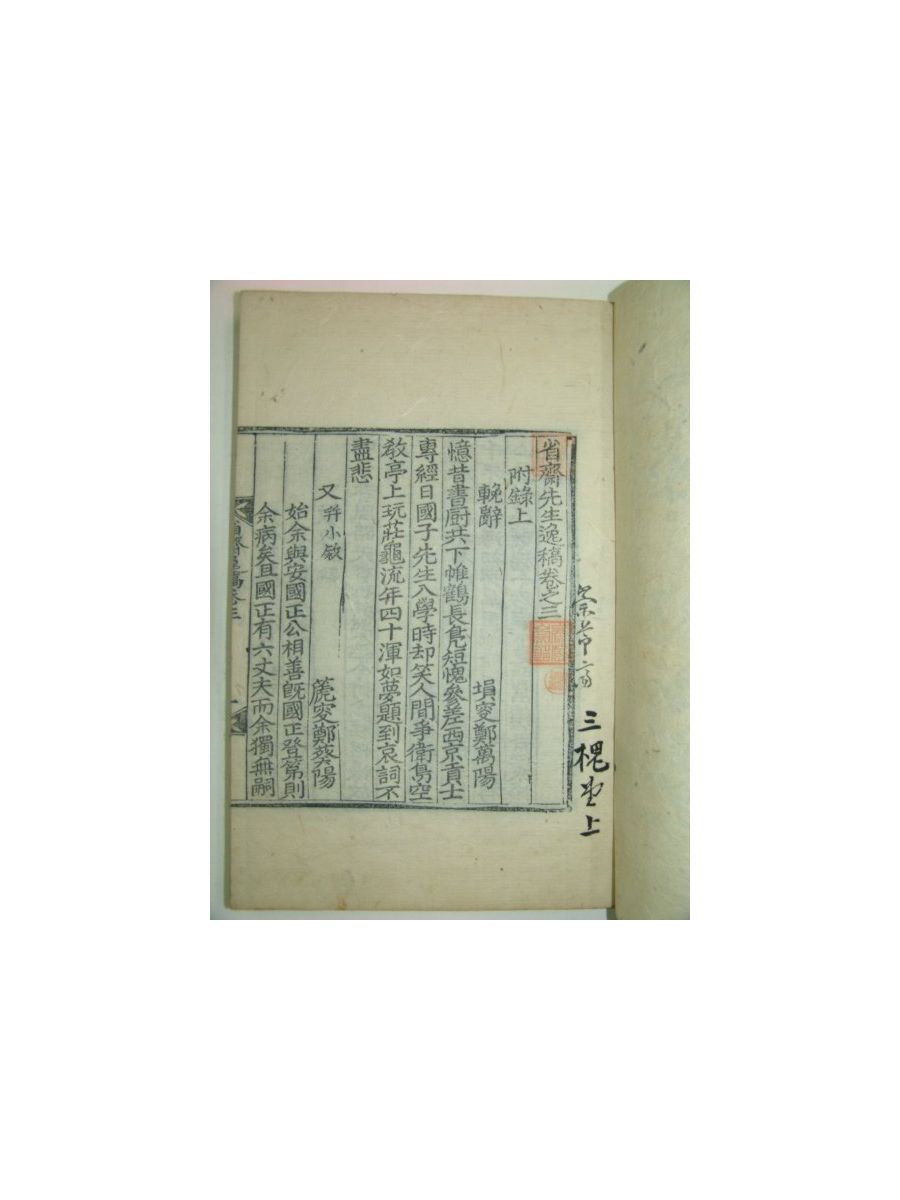 省齋先生逸稿卷之三
附錄上
輓辭
塤窔鄭萬陽
憶昔書厨共下帷鶴長鳧短愧參差西京貢士
專經日國子先生入學時却笑人間爭衛鳥空
教亭上玩莊龜流年四十渾如夢題到哀詞不
盡悲
又并小敘
篪窔鄭葵陽
始余與安國正公相善旣國正登第則
余病矣且國正有六丈夫而余獨無嗣
省齋逸稿卷三
三槐堂上